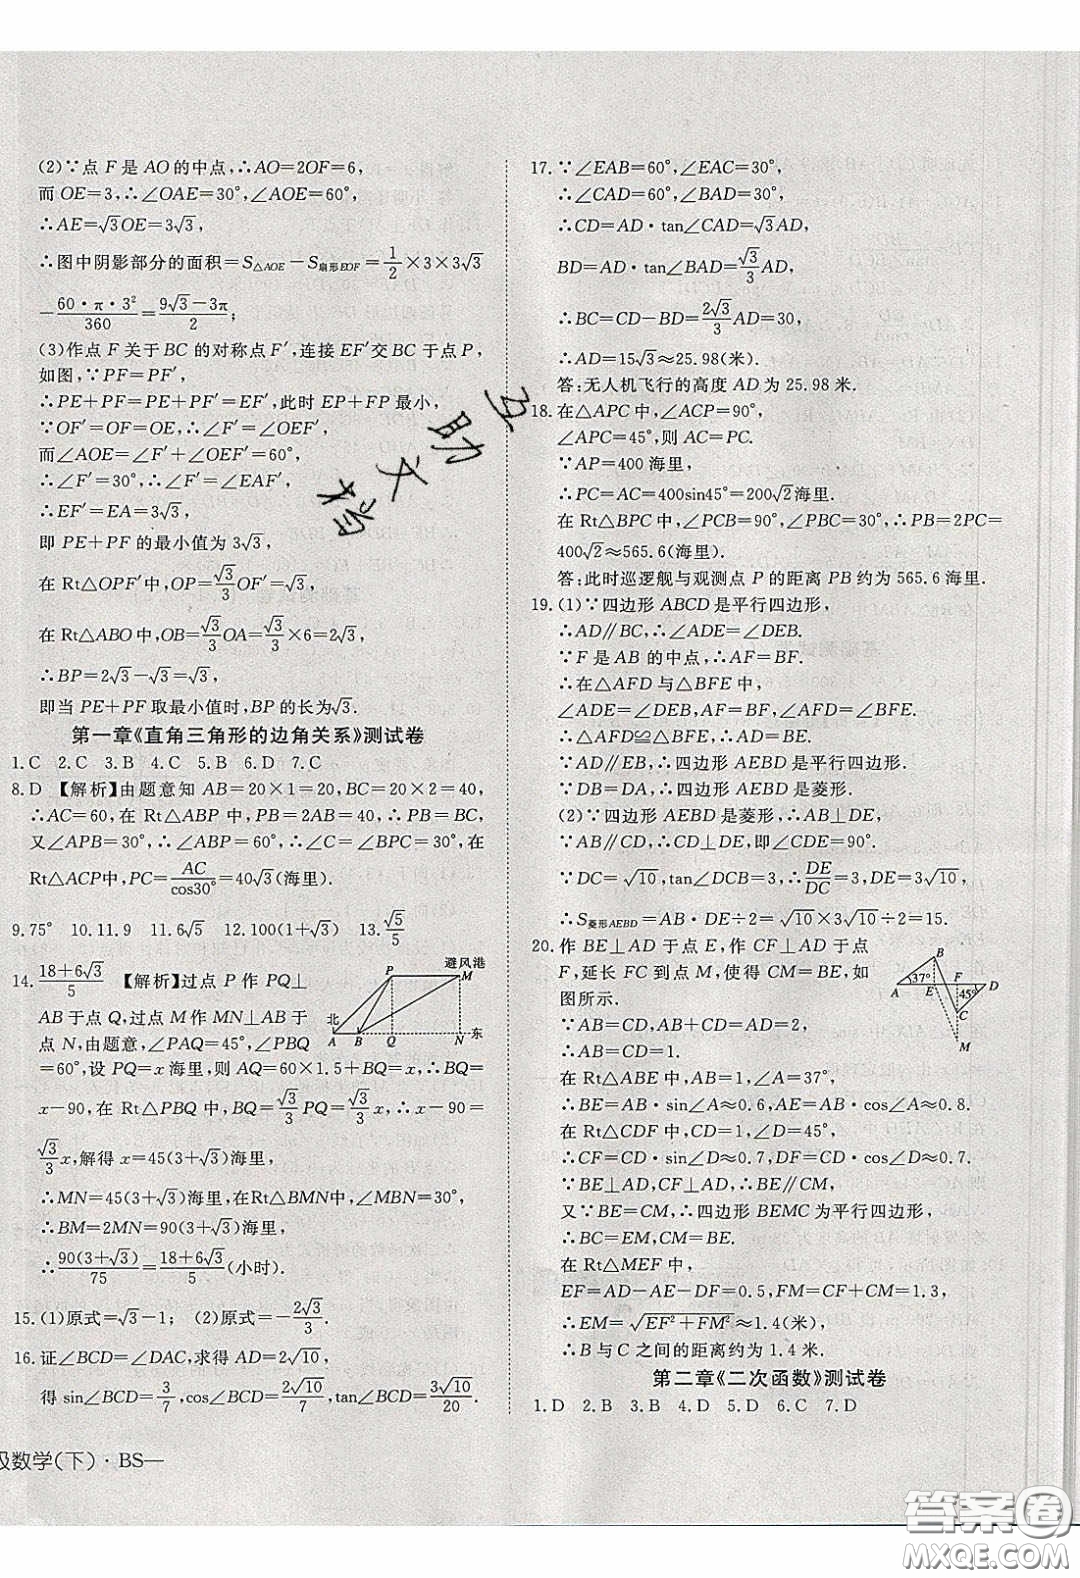 (2)∵点 F 是 AO 的中点,∴AO=2OF=6,
而 OE=3,∴∠OAE=30°,∠AOE=60°,
∴AE=√3OE=3√3,
∴图中阴影部分的面积=S△AOE-S扇形EOF=1/2×3×3√3
-60·π·3²/360=(9√3-3π)/2;
(3)作点 F 关于 BC 的对称点 F′,连接 EF′交 BC 于点 P,
如图,∵PF=PF′,
∴PE+PF=PE+PF′=EF′,此时 EP+FP 最小,
∵OF′=OF=OE,∴∠F′=∠OEF′,
而∠AOE=∠F′+∠OEF′=60°,
∴∠F′=30°,∴∠F′=∠EAF′,
∴EF′=EA=3√3,
即 PE+PF 的最小值为 3√3,
在 Rt△OPF′中,OP=√3/3OF′=√3,
在 Rt△ABO 中,OB=√3/3OA=√3/3×6=2√3,
∴BP=2√3-√3=√3,
即当 PE+PF 取最小值时,BP 的长为√3.
第一章《直角三角形的边角关系》测试卷
1.C 2.C 3.B 4.C 5.B 6.D 7.C
8.D 【解析】由题意知 AB=20×1=20,BC=20×2=40,
∴AC=60,在 Rt△ABP 中,PB=2AB=40,∴PB=BC,
又∠APB=30°,∴∠ABP=60°,∴∠C=∠BPC=30°,在
Rt△ACP中,PC=AC/cos30°=40√3(海里).
9.75° 10.11.9 11.6√5 12.100(1+√3) 13.√5/5
14.(18+6√3)/5 【解析】过点 P 作 PQ⊥
AB 于点 Q,过点 M 作 MN⊥AB 于
点 N,由题意,∠PAQ=45°,∠PBQ
=60°,设 PQ=x 海里,则 AQ=60×1.5+BQ=x,∴BQ=
x-90,在 Rt△PBQ 中,BQ=√3/3PQ=√3/3x,∴x-90=
√3/3x,解得 x=45(3+√3)海里,
∴MN=45(3+√3)海里,在Rt△BMN中,∠MBN=30°,
∴BM=2MN=90(3+√3)海里,
∴90(3+√3)/75=(18+6√3)/5(小时).
15.(1)原式=√3-1; (2)原式=-2√3/3.
16.证∠BCD=∠DAC,求得 AD=2√10,
得 sin∠BCD=3/7,cos∠BCD=2√10/7,tan∠BCD=3√10/20.
避风港
P
M
北
A
B
Q
N
东
17.∵∠EAB=60°,∠EAC=30°,
∴∠CAD=60°,∠BAD=30°,
∴CD=AD·tan∠CAD=√3AD,
BD=AD·tan∠BAD=√3/3AD,
∴BC=CD-BD=2√3/3AD=30,
∴AD=15√3≈25.98(米).
答:无人机飞行的高度 AD 为 25.98 米.
18.在△APC 中,∠ACP=90°,
∠APC=45°,则 AC=PC.
∵AP=400 海里,
∴PC=AC=400sin45°=200√2海里.
在 Rt△BPC 中,∠PCB=90°,∠B=30°,∴PB=2PC=
400√2≈565.6(海里).
答:此时巡逻舰与观测点 P 的距离 PB 约为 565.6 海里.
19.(1)∵四边形 ABCD 是平行四边形,
∴AD∥BC,∴∠ADE=∠DEB.
∵F 是 AB 的中点,∴AF=BF.
∴在△AFD 与△BFE 中,
∠ADF=∠BEF,∠AFD=∠BFE,AF=BF,
∴△AFD≌△BFE.
∴AD=BE,∴四边形 AEBD 是平行四边形.
∵DB=DA,∴四边形 AEBD 是菱形.
(2)∵四边形 AEBD 是菱形,∴AB⊥DE,
∵AB∥CD,∴CD⊥DE,即∠CDE=90°.
∵DC=√10,tan∠DCB=3,∴DE/DC=3,DE=3√10,
∴S菱形AEBD=AB·DE÷2=√10×3√10÷2=15.
20.作 BE⊥AD 于点 E,作 CF⊥AD 于点
F,延长 FC到点 M,使得 CM=BE,如
图所示.
∵AB=CD,AB+CD=AD=2,
∴AB=CD=1.
在 Rt△ABE 中,AB=1,∠A=37°,
∴BE=AB·sin∠A≈0.6,AE=AB·cos∠A≈0.8.
在 Rt△CDF 中,CD=1,∠D=45°,
∴CF=CD·sin∠D≈0.7,DF=CD·cos∠D≈0.7.
∵BE⊥AD,CF⊥AD,∴BE∥CM,
又∵BE=CM,∴四边形 BEMC 为平行四边形,
∴BC=EM,CM=BE.
在 Rt△MEF 中,
EF=AD-AE-DF=0.5,FM=CF+CM=1.3,
∴EM=√(EF²+FM²)≈1.4(米),
∴B 与 C 之间的距离约为 1.4 米.
B
37°
F
A
E
45°
D
C
M
第二章《二次函数》测试卷
1.D 2.B 3.B 4.D 5.D 6.C 7.D
级数学(下)·BS—
互助文档
答案圈
MXQE.COM